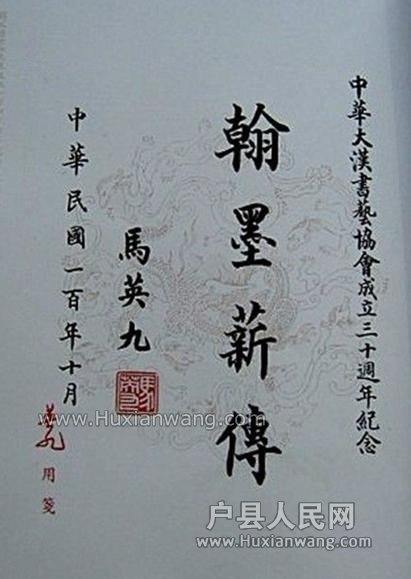 中華大漢書藝協會成立三十週年紀念
翰墨薪傳
馬英九
中華民國一百年十月
英九
用箋
www.Huxianwang.com
户县人民网
www.Huxianwang.com